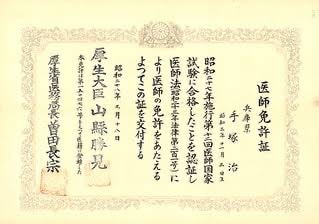 医師免許証
兵庫県
手塚治
昭和三年十一月三日生
昭和二十七年施行第十三回医師国家
試験に合格したことを認証し
医師法(昭和二十三年法律第二百一号)に
より医師の免許をあたえる
よつてこの証を交付する
昭和二十八年九月十八日
厚生大臣山縣勝見
号をもつて医籍に登録した
厚生省医務局長曽田長宗